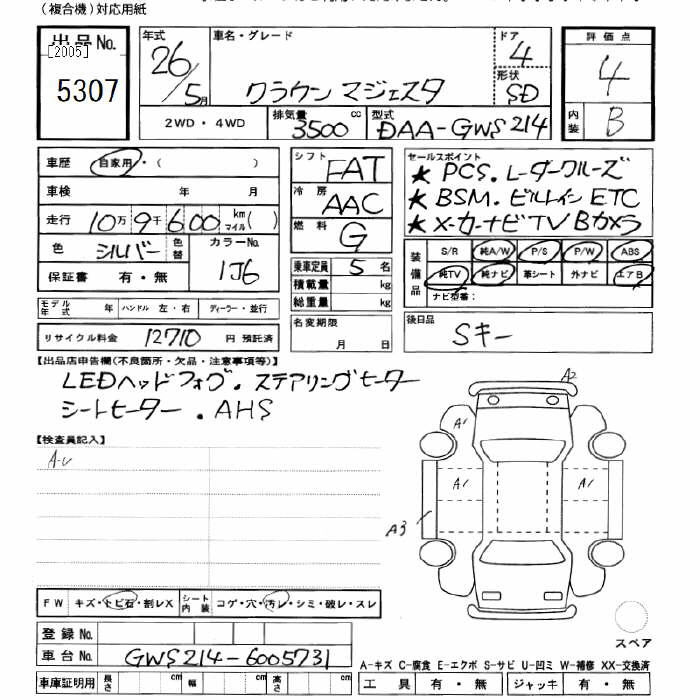 (複合機)対応用紙
出品No.
[2005]
5307
年式
26/5月
車名・グレード
クラウン マジェスタ
ドア
4
形状
SD
評価点
4
内装
B
2WD・4WD
排気量
3500 cc
型式
DAA-GWS214
車歴
自家用・( )
車検 年 月
走行 10万9千600 km マイル( )
色 シルバー 色替
カラーNo.
1J6
保証書 有・無
シフト
FAT
冷房
AAC
燃料
G
乗車定員 5 名
積載量 kg
総重量 kg
セールスポイント
★ PCS. レーダークルーズ
★ BSM. ビルトイン ETC
★ メーカーナビTV Bカメラ
装備品
S/R 純A/W P/S P/W ABS
純TV 純ナビ 革シート 外ナビ エアB
ナビ型番:
モデル年式 年 ハンドル 左・右 ディーラー・並行
リサイクル料金 12710 円 預託済
名変期限
月 日
後日品
Sキー
【出品店申告欄(不良箇所・欠品・注意事項等)】
LEDヘッドフォグ. ステアリングヒーター
シートヒーター. AHS
【検査員記入】
A-U
A2
A1
A1
A1
A3
FW キズ・トビ石・割レX
シート内装 コゲ・穴・汚レ・シミ・破レ・スレ
登録No.
車台No. GWS214-6005731
車庫証明用 長さ cm 幅 cm 高さ cm
スペア
A-キズ C-腐食 E-エクボ S-サビ U-凹ミ W-補修 XX-交換済
工具 有・無 ジャッキ 有・無